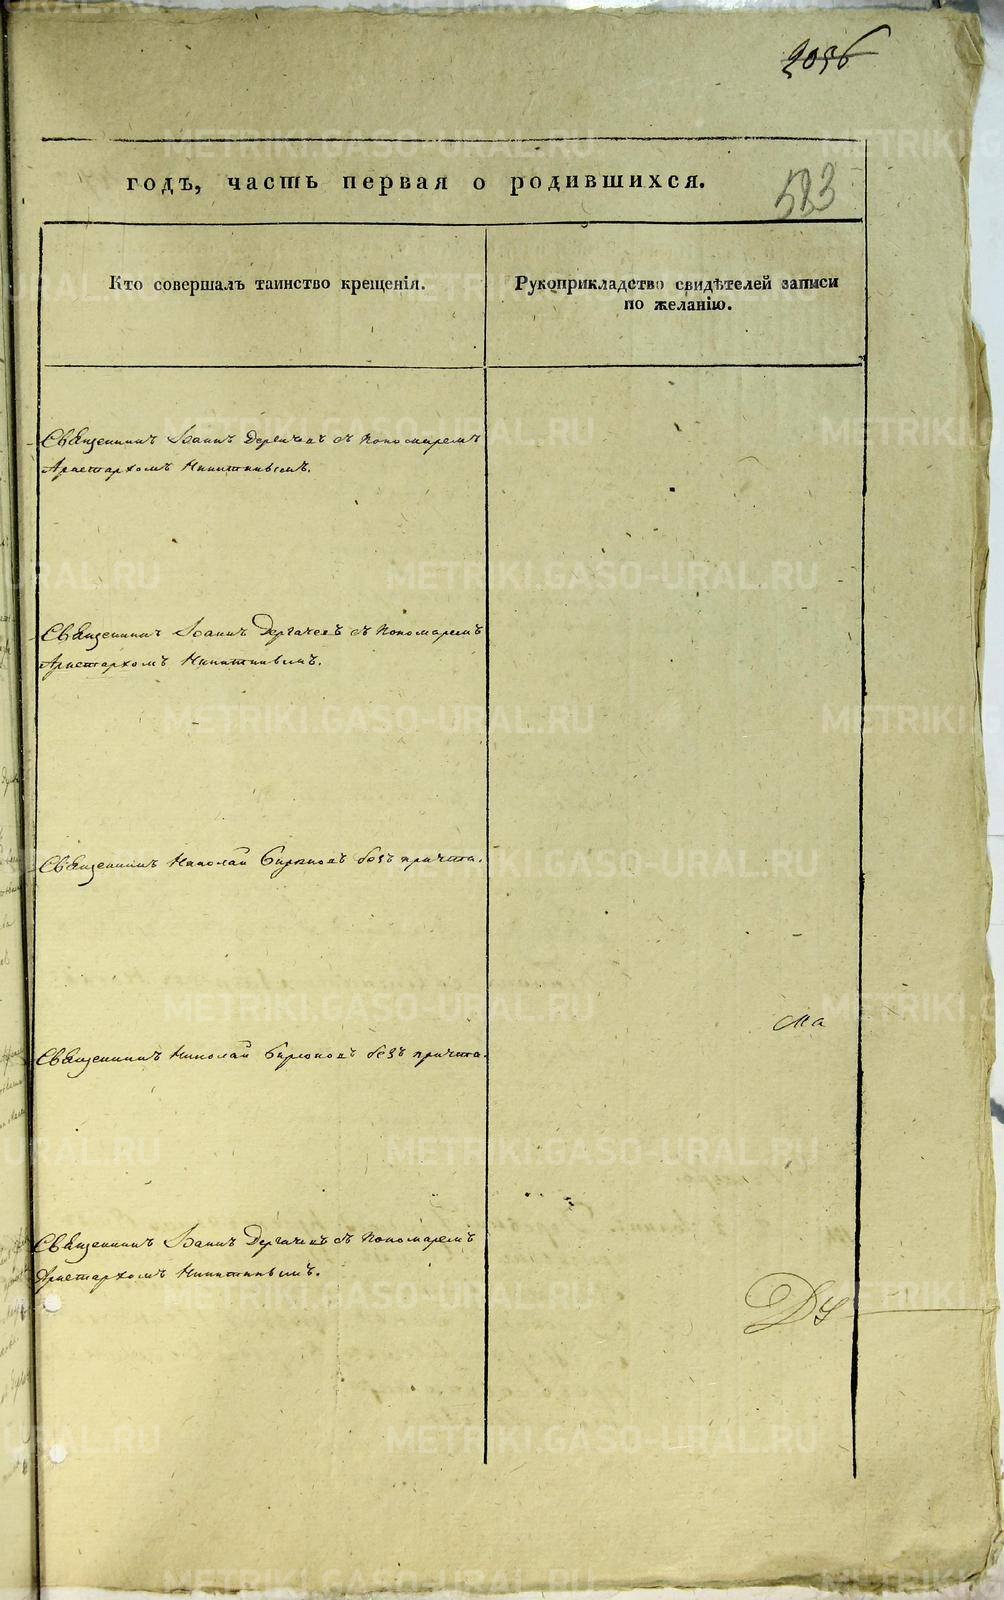 2056
годъ, часть первая о родившихся.
583
Кто совершалъ таинство крещенія.
Рукоприкладство свидѣтелей записи
по желанію.
Священникъ Іоаннъ Дергачевъ съ пономаремъ
Аристархомъ Никитинымъ.
Священникъ Іоаннъ Дергачевъ съ пономаремъ
Аристархомъ Никитинымъ.
Священникъ Николай Бирюковъ безъ причта.
Священникъ Николай Бирюковъ безъ причта.
Священникъ Іоаннъ Дергачевъ съ пономаремъ
Аристархомъ Никитинымъ.
METRIKI.GASO-URAL.RU